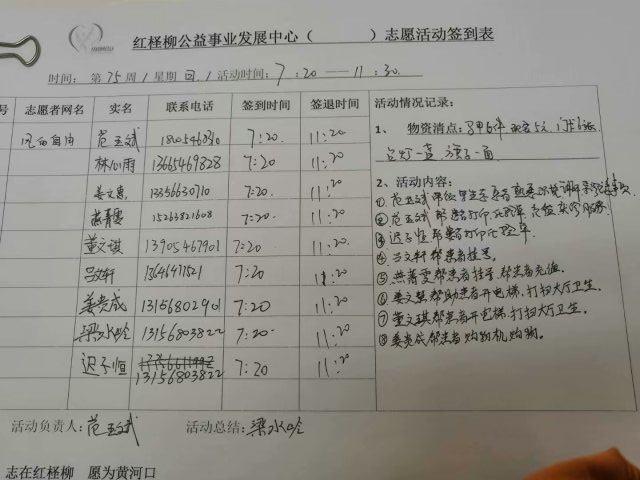 红柽柳公益事业发展中心（ ）志愿活动签到表
时间：第75周/星期四/活动时间：7:20—11:30
号 志愿者网名 实名 联系电话 签到时间 签退时间 活动情况记录：
风的自由 范玉斌 7:20 11:20
林心雨 13665469828 7:20 11:20
姜文惠 13356630710 7:20 11:20
燕青雯 15263821608 7:20 11:20
董文琪 13905467901 7:20 11:20
吕文轩 13646471521 7:20 11:20
姜贵成 13156802901 7:20 11:20
梁水吟 13156803822 7:20 11:20
迟子恒 13156803822 7:20 11:20
1、物资清点：马甲6件
台灯一盏 旗子一面
2、活动内容：
① 范玉斌
② 范玉斌 帮患者打印化验单
③ 迟子恒帮患者打印化验单
④ 吕文轩帮患者挂号。
⑤ 燕青雯帮患者挂号 帮患者充值。
⑥ 姜文惠帮助患者开电梯，打扫大厅卫生。
⑦ 董文琪帮患者开电梯，打扫大厅卫生。
⑧ 姜贵成帮患者购物机购物。
活动负责人：范玉斌 活动总结：梁水吟
志在红柽柳 愿为黄河口